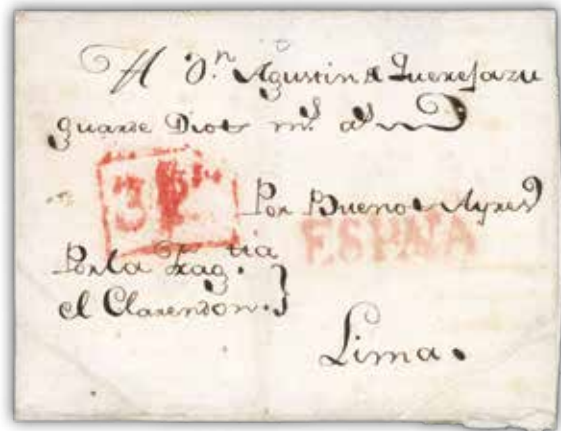 A Dn. Agustin de Querejazu
guarde Dios ms. as.
Por Buenos Ayres
ESPÑA
Por la Fragtia.
el Clarendon.
Lima.